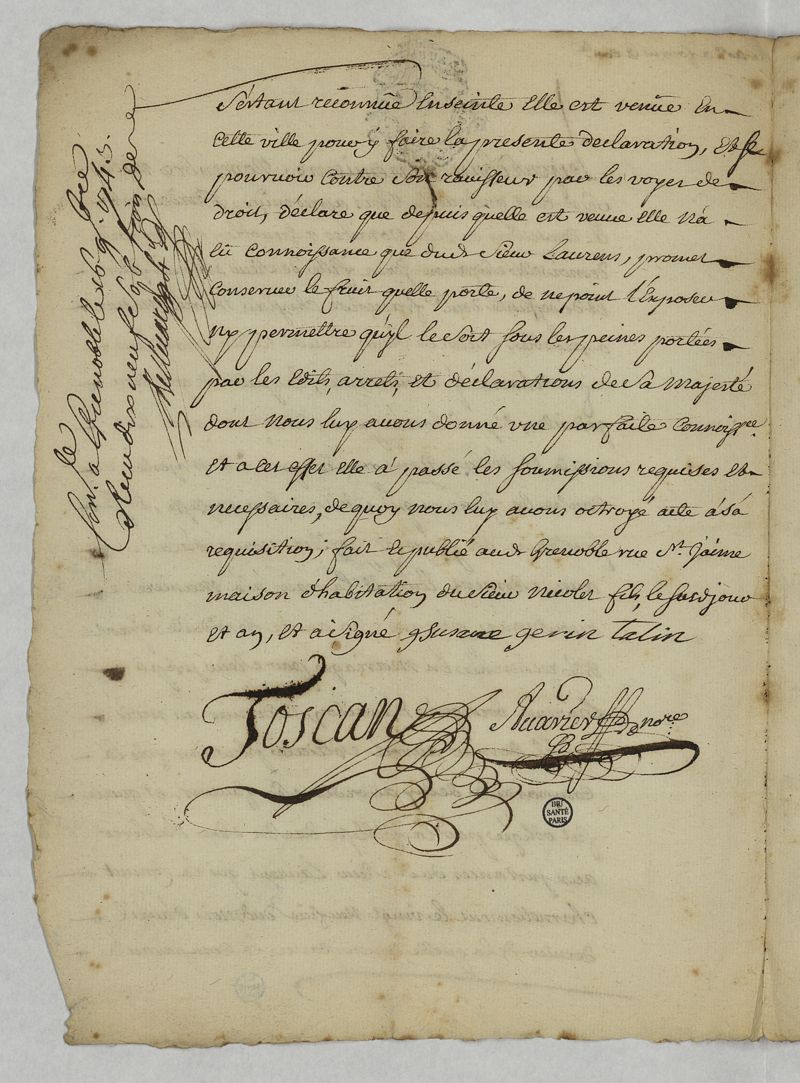 Sértant reconnüe Enseinte Elle est venüe En
cette ville pour y faire la presente declaration, Et se
pourvoir Contre son ravisseur par les voyes de
droit, déclare que depuis quelle est venue Elle n'a
Eü Connoissance que dud sieur Laurens, promet
Conserver le fruit quelle porte, de ne point l'Exposer
ny permettre qu'yl le soit sous les peines portées
par les Edits, arrets, et déclarations de Sa Majesté
dont nous luy avons donné vne parfaite Connoissce
Et a cet effet elle à passé les soumissions requises Et
necessaires, de quoy nous luy avons octroyé acte à sa
requisition; fait Et publié aud Grenoble rue St. Jaime
maison d'habitation du sieur Nicolet fils, le susd jour
et an, et a signé
Toscan
nore
Con.le a Grenoble le 1743.
Reçu dix neuf sols
BIU
SANTÉ
PARIS